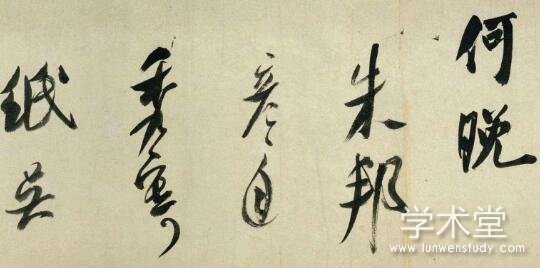 何晚
朱邦
彦自
秦寄
紙吴
学术堂
www.lunwenstudy.com